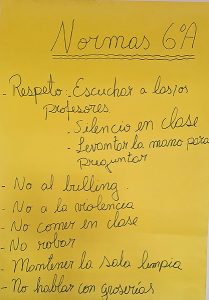 Normas 6ºA
- Respeto: Escuchar a las/os
profesores
. Silencio en clase
. Levantar la mano para
preguntar
- No al bulling.
- No a la violencia
- No comer en clase
- No robar
- Mantener la sala limpia
- No hablar con groserías